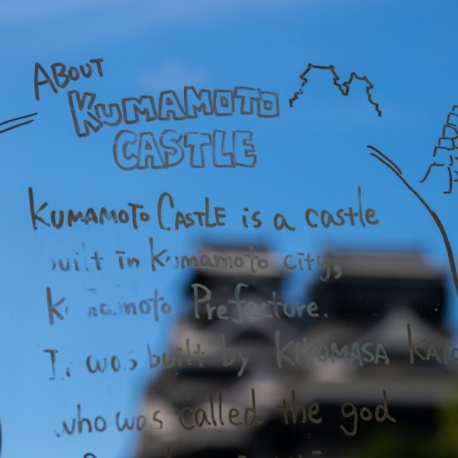 ABOUT
KUMAMOTO
CASTLE
KUMAMOTO CASTLE is a castle
built in Kumamoto city,
Kumamoto Prefecture.
It was built by KIYOMASA KATO
who was called the god